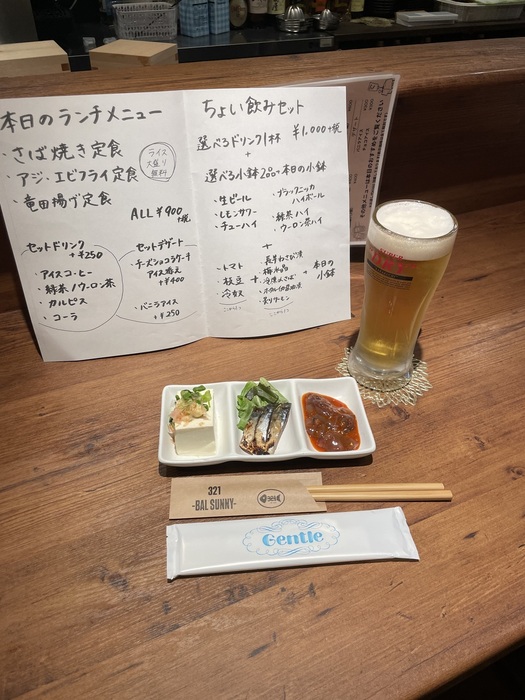 本日のランチメニュー
・さば焼き定食
・アジ・エビフライ定食
・竜田揚げ定食
ライス
大盛り
無料
ALL ¥900
セットドリンク
+¥250
・アイスコーヒー
・緑茶/ウーロン茶
・カルピス
・コーラ
セットデザート
・チーズショコラケーキ
アイス添え
+¥400
・バニラアイス
+¥250
ちょい飲みセット
選べるドリンク1杯 ¥1,000
+
選べる小鉢2品 or 本日の小鉢
・生ビール
・レモンサワー
・チューハイ
・ブラックニッカ
ハイボール
・緑茶ハイ
・ウーロン茶ハイ
+
・トマト
・枝豆
・冷奴
+
・長芋わさび漬
・梅水晶
・冷燻〆さば
・炙りサーモン
本日の
小鉢
321
-BAL SUNNY-
Gentle